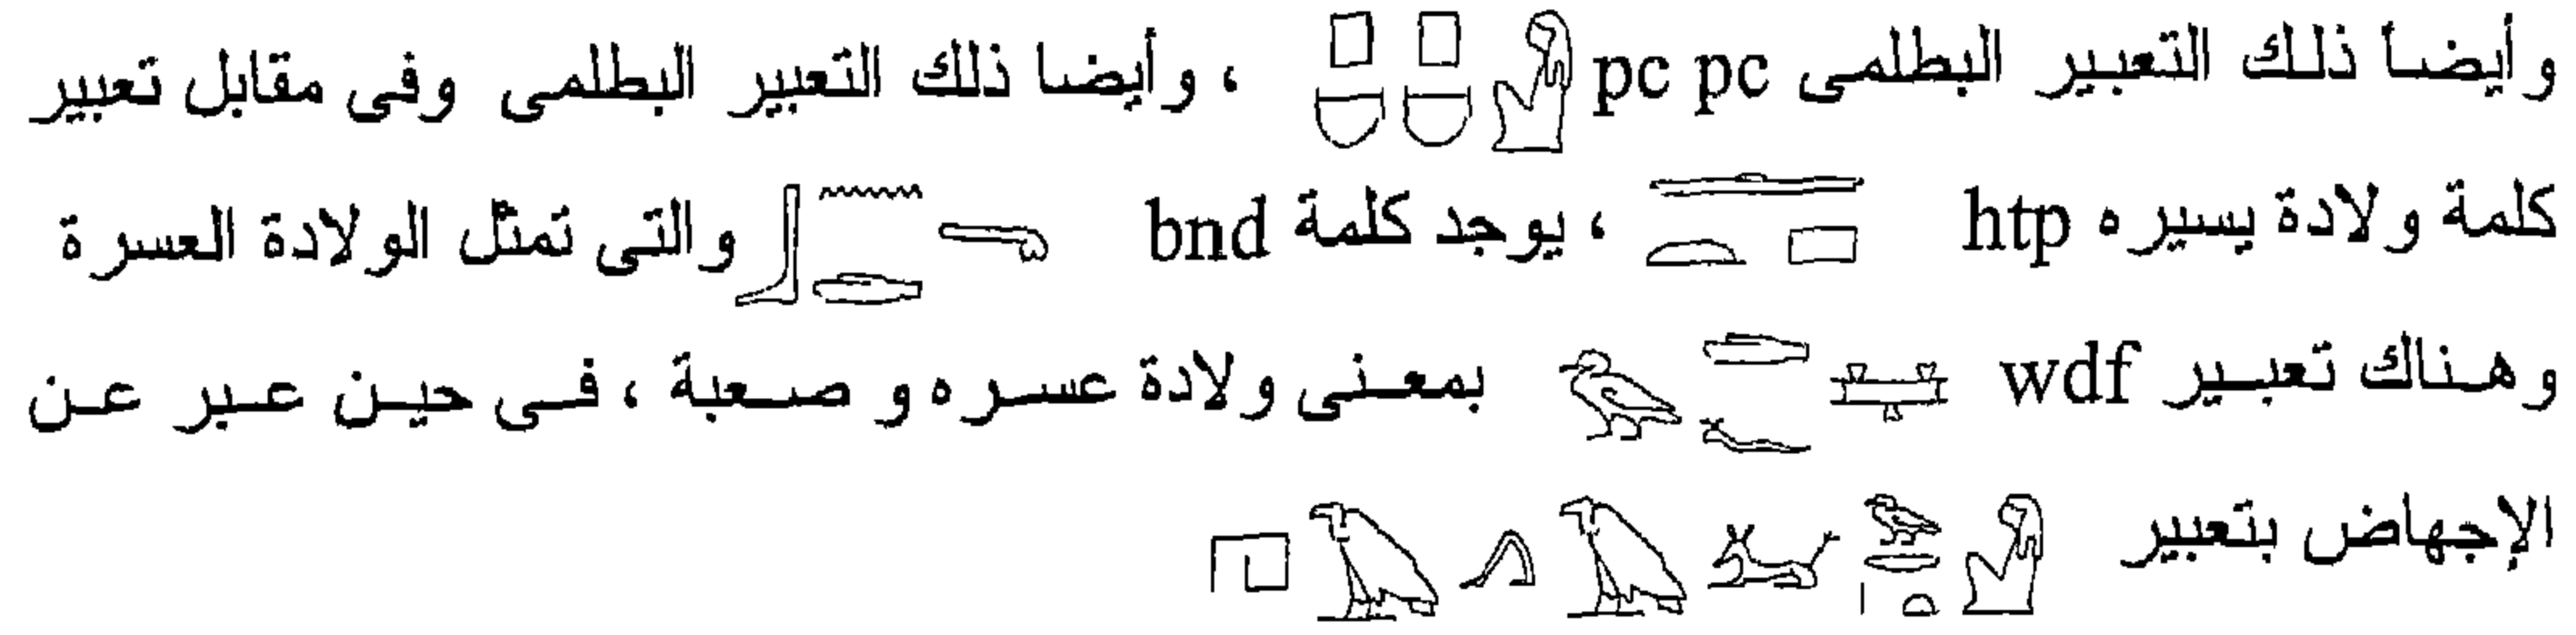 وأيضاً ذلك التعبير البطلمى pc pc ، وأيضا ذلك التعبير البطلمى وفى مقابل تعبير
كلمة ولادة يسيره htp ، يوجد كلمة bnd والتى تمثل الولادة العسرة
وهناك تعبير wdf بمعنى ولادة عسره و صعبة ، فى حين عبر عن
الإجهاض بتعبير